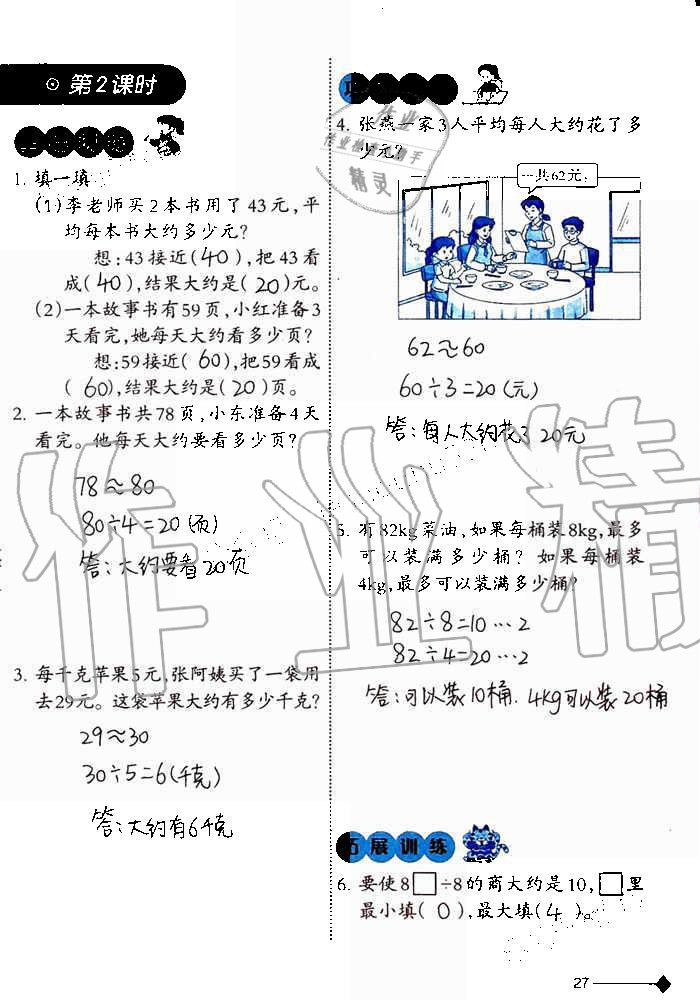 第2课时
1. 填一填
(1)李老师买2本书用了43元,平
均每本书大约多少元?
想:43接近(40),把43看
成(40),结果大约是(20)元。
(2)一本故事书有59页,小红准备3
天看完,她每天大约看多少页?
想:59接近(60),把59看成
(60),结果大约是(20)页。
2. 一本故事书共78页,小东准备4天
看完。他每天大约要看多少页?
78≈80
80÷4=20(页)
答:大约要看20页
3. 每千克苹果5元,张阿姨买了一袋用
去29元。这袋苹果大约有多少千克?
29≈30
30÷5=6(千克)
答:大约有6千克
4. 张燕一家3人平均每人大约花了多
少元?
一共62元。
62≈60
60÷3=20(元)
答:每人大约花了20元
5. 有82kg菜油,如果每桶装8kg,最多
可以装满多少桶?如果每桶装
4kg,最多可以装满多少桶?
82÷8=10…2
82÷4=20…2
答:可以装10桶.4kg可以装20桶
拓展训练
6. 要使8□÷8的商大约是10,□里
最小填(0),最大填(4)。
27
作业
精灵
作业精